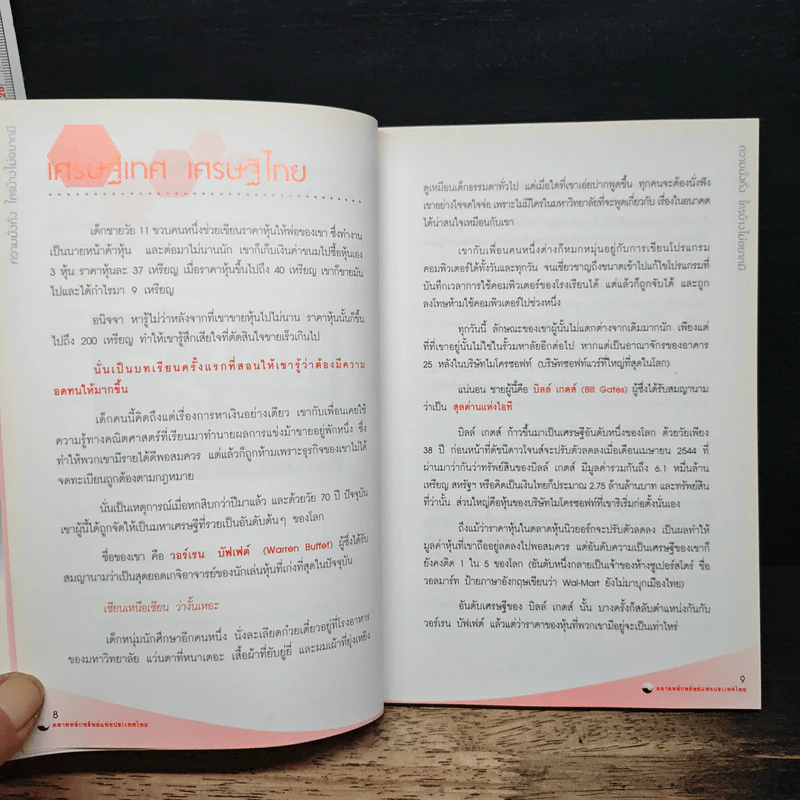 เศรษฐีเทศ เศรษฐีไทย
เด็กชายวัย 11 ขวบคนหนึ่งช่วยเขียนราคาหุ้นให้พ่อของเขา ซึ่งทำงาน
เป็นนายหน้าค้าหุ้น และต่อมาไม่นานนัก เขาก็เก็บเงินค่าขนมไปซื้อหุ้นเอง
3 หุ้น ราคาหุ้นละ 37 เหรียญ เมื่อราคาหุ้นขึ้นไปถึง 40 เหรียญ เขาก็ขายมัน
ไปและได้กำไรมา 9 เหรียญ
อนิจจา หารู้ไม่ว่าหลังจากที่เขาขายหุ้นไปไม่นาน ราคาหุ้นนั้นก็ขึ้น
ไปถึง 200 เหรียญ ทำให้เขารู้สึกเสียใจที่ตัดสินใจขายเร็วเกินไป
นั่นเป็นบทเรียนครั้งแรกที่สอนให้เขารู้ว่าต้องมีความ
อดทนให้มากขึ้น
เด็กคนนี้คิดถึงแต่เรื่องการหาเงินอย่างเดียว เขากับเพื่อนเคยใช้
ความรู้ทางคณิตศาสตร์ที่เรียนมาทำนายผลการแข่งม้าขายอยู่พักหนึ่ง ซึ่ง
ทำให้พวกเขามีรายได้ดีพอสมควร แต่แล้วก็ถูกห้ามเพราะธุรกิจของเขาไม่ได้
จดทะเบียนถูกต้องตามกฎหมาย
นั่นเป็นเหตุการณ์เมื่อหกสิบกว่าปีมาแล้ว และด้วยวัย 70 ปี ปัจจุบัน
เขาผู้นี้ได้ถูกจัดให้เป็นมหาเศรษฐีที่รวยเป็นอันดับต้นๆ ของโลก
ชื่อของเขา คือ วอร์เรน บัฟเฟต์ (Warren Buffet) ผู้ซึ่งได้รับ
สมญานามว่าเป็นสุดยอดเกจิอาจารย์ของนักเล่นหุ้นที่เก่งที่สุดในปัจจุบัน
เซียนเหนือเซียน ว่างั้นเหอะ
เด็กหนุ่มนักศึกษาอีกคนหนึ่ง นั่งละเลียดก๋วยเตี๋ยวอยู่ที่โรงอาหาร
ของมหาวิทยาลัย แว่นตาที่หนาเตอะ เสื้อผ้าที่ยับยู่ยี่ และผมเผ้าที่ยุ่งเหยิง
8
ตลาดหลักทรัพย์แห่งประเทศไทย
ความมั่งคั่ง ใครบ้างไม่อยากมี
ดูเหมือนเด็กธรรมดาทั่วไป แต่เมื่อใดที่เขาเอ่ยปากพูดขึ้น ทุกคนจะต้องนั่งฟัง
เขาอย่างใจจดใจจ่อ เพราะไม่มีใครในมหาวิทยาลัยที่จะพูดเกี่ยวกับ เรื่องในอนาคต
ได้น่าสนใจเหมือนกับเขา
เขากับเพื่อนคนหนึ่งต่างก็หมกหมุ่นอยู่กับการเขียนโปรแกรม
คอมพิวเตอร์ได้ทั้งวันและทุกวัน จนเชี่ยวชาญถึงขนาดเข้าไปแก้ไขโปรแกรมที่
บันทึกเวลาการใช้คอมพิวเตอร์ของโรงเรียนได้ แต่แล้วก็ถูกจับได้ และถูก
ลงโทษห้ามใช้คอมพิวเตอร์ไปช่วงหนึ่ง
ทุกวันนี้ ลักษณะของเขาผู้นั้นไม่แตกต่างจากเดิมมากนัก เพียงแต่
ที่ที่เขาอยู่นั้นไม่ใช่ในรั้วมหาลัยอีกต่อไป หากแต่เป็นอาณาจักรของอาคาร
25 หลังในบริษัทไมโครซอฟท์ (บริษัทซอฟท์แวร์ที่ใหญ่ที่สุดในโลก)
แน่นอน ชายผู้นี้คือ บิลล์ เกตส์ (Bill Gates) ผู้ซึ่งได้รับสมญานาม
ว่าเป็น สุลต่านแห่งไอที
บิลล์ เกตส์ ก้าวขึ้นมาเป็นเศรษฐีอันดับหนึ่งของโลก ด้วยวัยเพียง
38 ปี ก่อนหน้าที่ดัชนีดาวโจนส์จะปรับตัวลดลงเมื่อเดือนเมษายน 2544 ที่
ผ่านมาว่ากันว่าทรัพย์สินของบิลล์ เกตส์ มีมูลค่ารวมกันถึง 6.1 หมื่นล้าน
เหรียญ สหรัฐฯ หรือคิดเป็นเงินไทยก็ประมาณ 2.75 ล้านล้านบาท และทรัพย์สิน
ที่ว่านั้น ส่วนใหญ่คือหุ้นของบริษัทไมโครซอฟท์ที่เขาริเริ่มก่อตั้งนั่นเอง
ถึงแม้ว่าราคาหุ้นในตลาดหุ้นนิวยอร์กจะปรับตัวลดลง เป็นผลทำให้
มูลค่าหุ้นที่เขาถืออยู่ลดลงไปพอสมควร แต่อันดับความเป็นเศรษฐีของเขาก็
ยังคงติด 1 ใน 5 ของโลก (อันดับหนึ่งกลายเป็นเจ้าของห้างซูเปอร์สโตร์ ชื่อ
วอลมาร์ท ป้ายภาษาอังกฤษเขียนว่า Wal-Mart ยังไม่มาบุกเมืองไทย)
อันดับเศรษฐีของ บิลล์ เกตส์ นั้น บางครั้งก็สลับตำแหน่งกันกับ
วอร์เรน บัฟเฟต์ แล้วแต่ว่าราคาของหุ้นที่พวกเขามีอยู่จะเป็นเท่าไหร่
9
ตลาดหลักทรัพย์แห่งประเทศไทย
ความมั่งคั่ง ใครบ้างไม่อยากมี